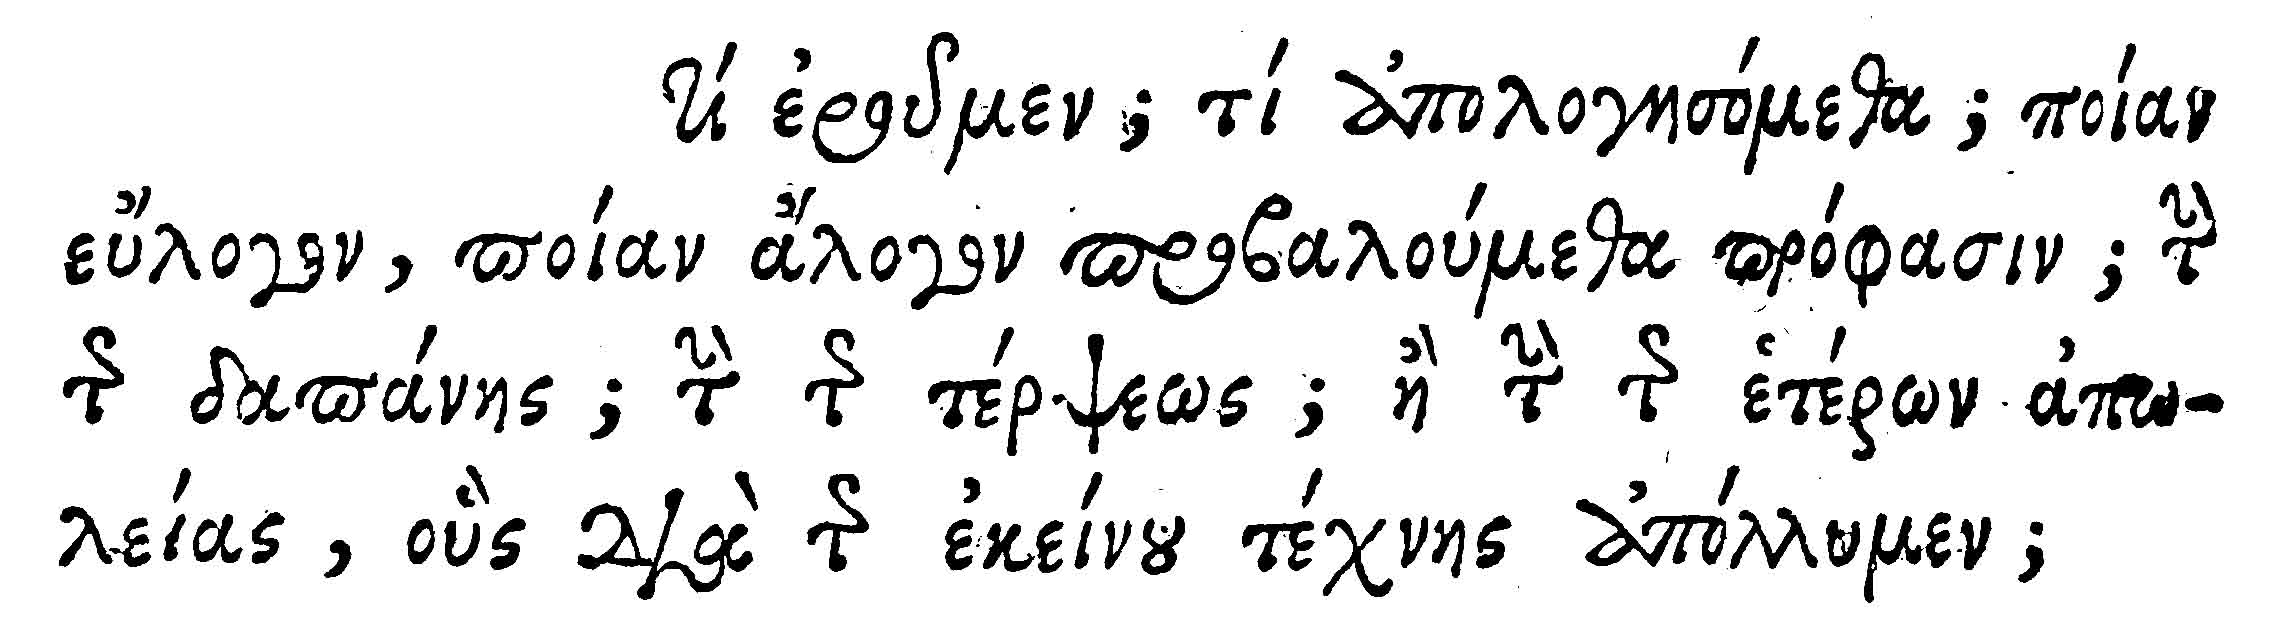 Τί ἐροῦμεν; τί ἀπολογησόμεθα; ποίαν
εὔλογον, ποίαν ἄλογον προβαλούμεθα πρόφασιν; τὴν
τῆς δαπάνης; τὴν τῆς τέρψεως; ἢ τὴν τῆς ἑτέρων ἀπω-
λείας, οὓς διὰ τῆς ἐκείνου τέχνης ἀπόλλυμεν;